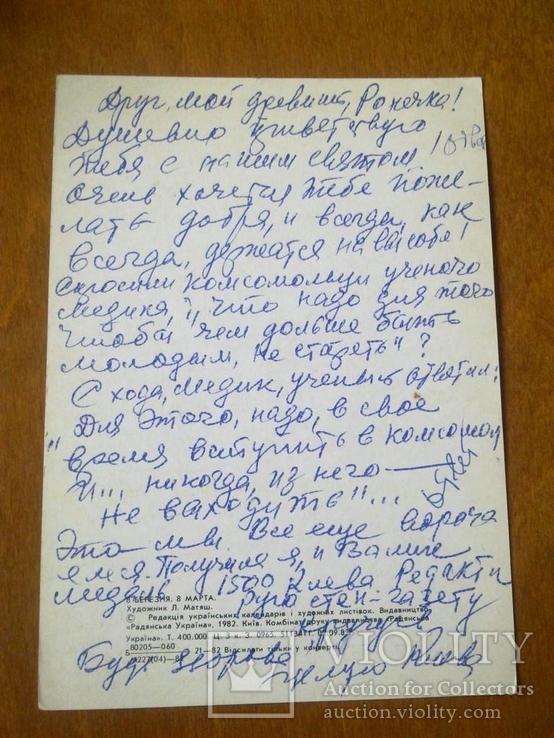 Друг, мой древний, Ронечка!
Душевно приветствую
тебя с нашим святом!
очень хочется тебе поже-
лать добра, и всегда, как
всегда, держатся на высоте!
Спросили комсомольцы ученого
медика, "что надо для того
чтобы чем дольше быть
молодым, не стареть"?
С хода, медик, ученый ответил:
"Для этого, надо, в свое
время вступить в комсомол
И... никогда, из него
не выходить"...
Это мы. Все еще
Получила я, и
медали 1500
стен-газету
8 БЕРЕЗНЯ. 8 МАРТА.
Художник Л. Матяш.
© Редакція українських календарів і художніх листівок. Видавництво
«Радянська Україна», 1982. Київ. Комбінат друку видавництва «Радянська
Україна». Т. 400.000.
80205—060
21—82 Відсилати тільки у конверті
М227(04)—82
Будь здорова
целую
VIOLITY
Auction for Collectors
auction.violity.com